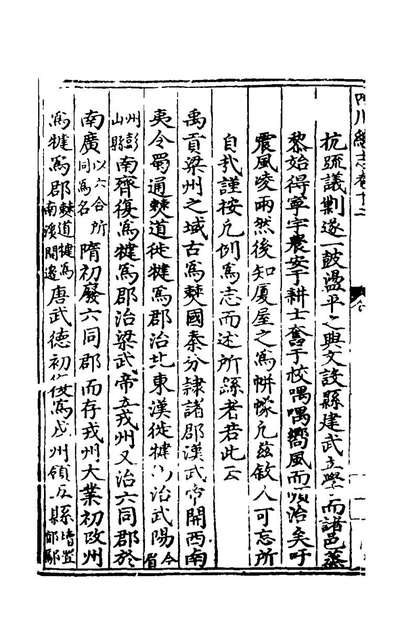 四川總志卷十二
抗疏議剿遂一鼓盪平之興文設縣建武立學而諸邑蒸
黎始得寧宇農安于耕士奮于校喁喁嚮風而順治矣吁
震風凌雨然後知廈屋之為帡幪凡茲敘人可忘所
自哉謹按凡例為志而述所繇者若此云
禹貢梁州之域古為僰國秦分隸諸郡漢武帝開西南
夷令蜀通僰道徙犍為郡治北東漢徙犍為治武陽今眉
州彭山縣南齊復為犍為郡治梁武帝立戎州又治六同郡於
南廣以六合所同為名隋初廢六同郡而存戎州大業初改州
為犍為郡僰道犍為南溪開邊唐武德初復為戎州領五縣增置郁鄢